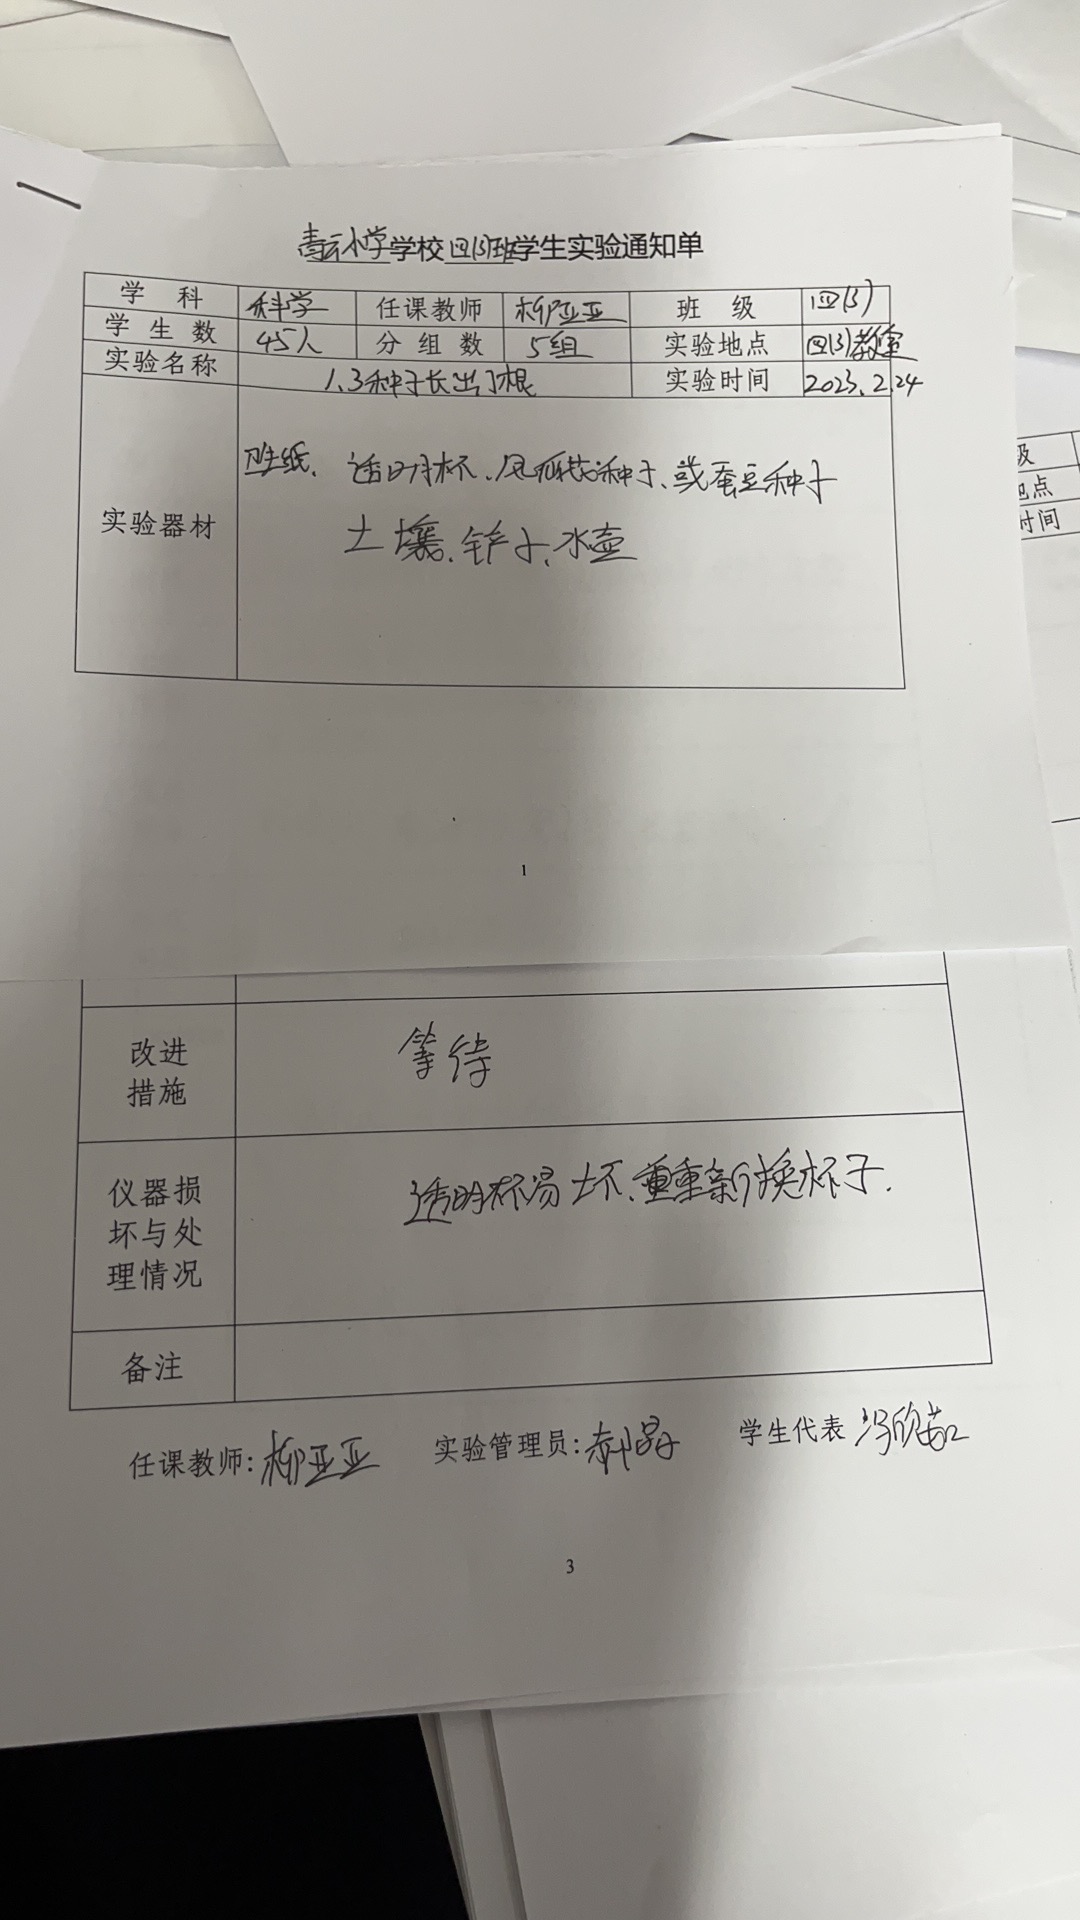 青云小学学校四(3)班学生实验通知单
学 科 科学 任课教师 柳亚亚 班 级 四(3)
学 生 数 45人 分 组 数 5组 实验地点 四(3)教室
实验名称 1.3种子长出了根 实验时间 2023.2.24
实验器材
卫生纸、透明杯、凤仙花种子、或蚕豆种子
土壤、铲子、水壶
1
级
地点
时间
改进
措施
等待
仪器损
坏与处
理情况
透明杯易坏、重重新换杯子.
备注
任课教师: 柳亚亚 实验管理员: 学生代表
3